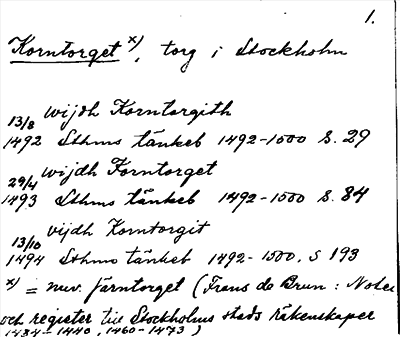 1.
Korntorget x), torg i Stockholm
13/8 wijdh Korntorgith
1492 Sthms tänkeb 1492-1500 S. 29
29/4 wijdh Korntorget
1493 Sthms tänkeb 1492-1500 S. 84
13/10 vijdh Korntorgit
1494 Sthms tänkeb 1492-1500, S 193
x) = nuv. Järntorget (Frans de Brun: Noter
och register till Stockholms stads räkenskaper
1434-1440, 1460-1473)